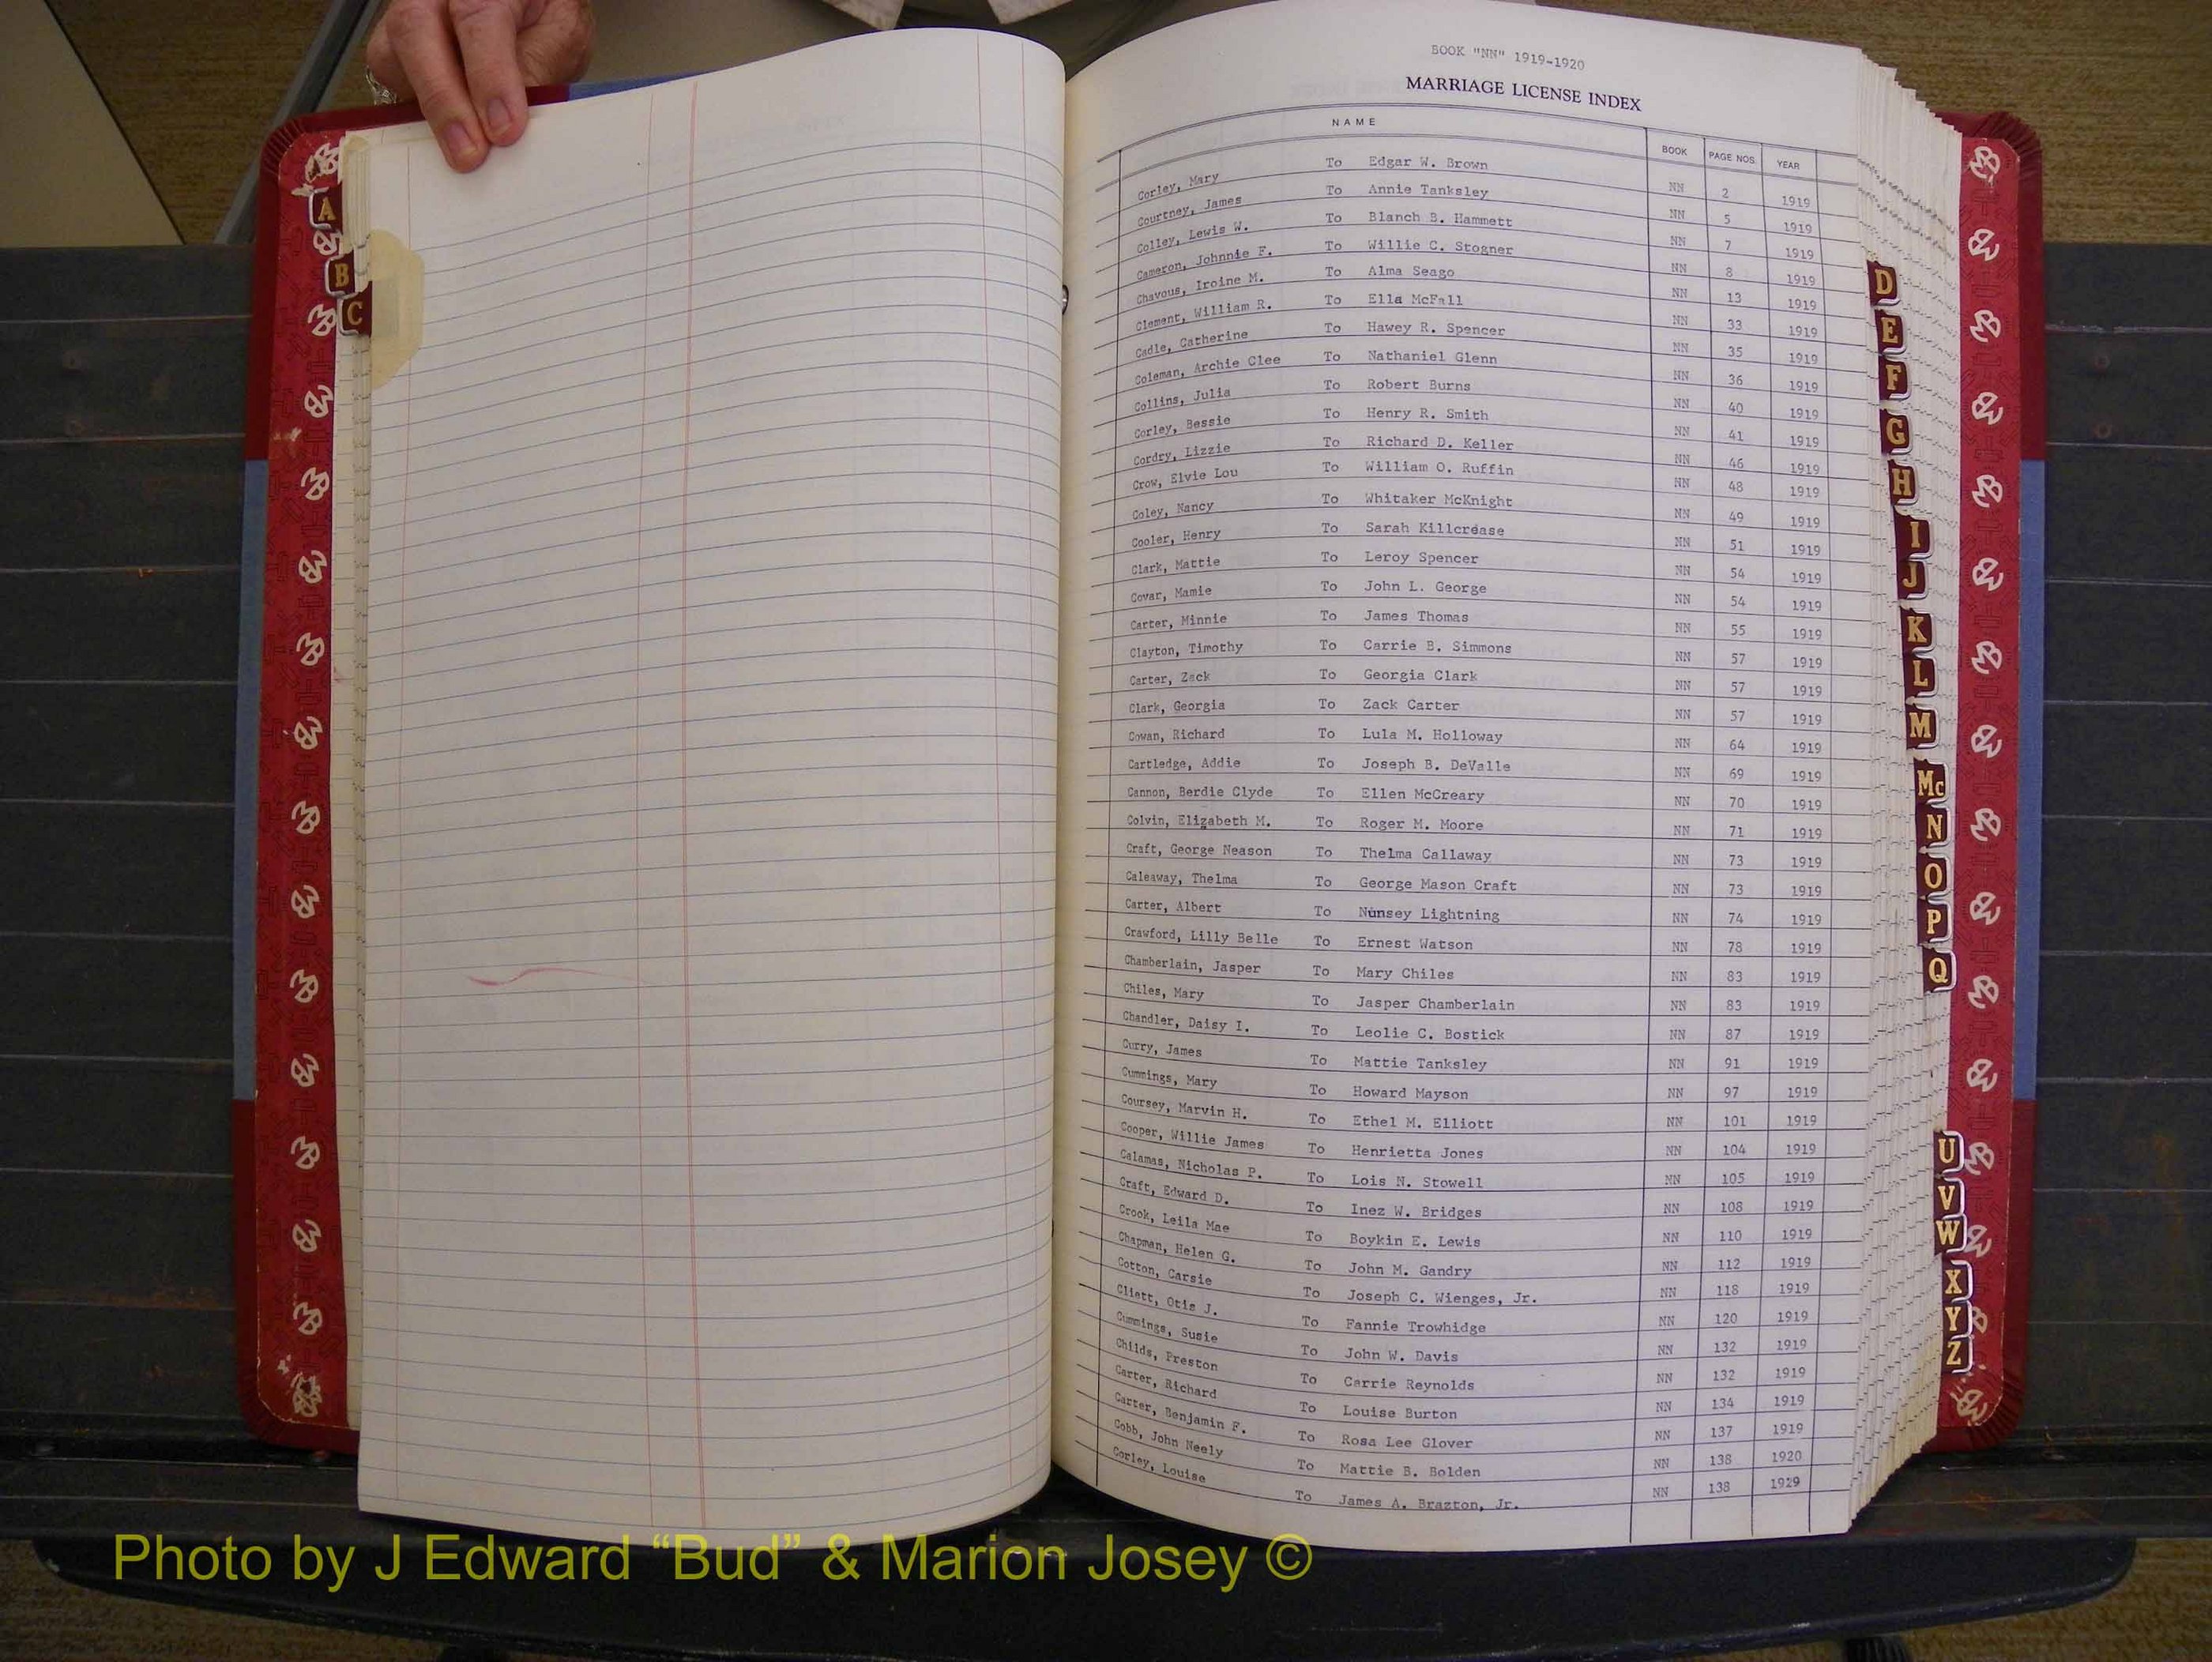 BOOK "NN" 1919-1920
MARRIAGE LICENSE INDEX
NAME BOOK PAGE NOS. YEAR
Corley, Mary To Edgar W. Brown NN 2 1919
Courtney, James To Annie Tanksley NN 5 1919
Colley, Lewis W. To Blanch B. Hammett NN 7 1919
Cameron, Johnnie F. To Willie C. Stogner NN 8 1919
Chavous, Iroine M. To Alma Seago NN 13 1919
Clement, William R. To Ella McFall NN 33 1919
Cadle, Catherine To Hawey R. Spencer NN 35 1919
Coleman, Archie Clee To Nathaniel Glenn NN 36 1919
Collins, Julia To Robert Burns NN 40 1919
Corley, Bessie To Henry R. Smith NN 41 1919
Cordry, Lizzie To Richard D. Keller NN 46 1919
Crow, Elvie Lou To William O. Ruffin NN 48 1919
Coley, Nancy To Whitaker McKnight NN 49 1919
Cooler, Henry To Sarah Killcrease NN 51 1919
Clark, Mattie To Leroy Spencer NN 54 1919
Covar, Mamie To John L. George NN 54 1919
Carter, Minnie To James Thomas NN 55 1919
Clayton, Timothy To Carrie B. Simmons NN 57 1919
Carter, Zack To Georgia Clark NN 57 1919
Clark, Georgia To Zack Carter NN 57 1919
Cowan, Richard To Lula M. Holloway NN 64 1919
Cartledge, Addie To Joseph B. DeValle NN 69 1919
Cannon, Berdie Clyde To Ellen McCreary NN 70 1919
Colvin, Elizabeth M. To Roger M. Moore NN 71 1919
Craft, George Neason To Thelma Callaway NN 73 1919
Caleaway, Thelma To George Mason Craft NN 73 1919
Carter, Albert To Nunsey Lightning NN 74 1919
Crawford, Lilly Belle To Ernest Watson NN 78 1919
Chamberlain, Jasper To Mary Chiles NN 83 1919
Chiles, Mary To Jasper Chamberlain NN 83 1919
Chandler, Daisy I. To Leolie C. Bostick NN 87 1919
Curry, James To Mattie Tanksley NN 91 1919
Cummings, Mary To Howard Mayson NN 97 1919
Coursey, Marvin H. To Ethel M. Elliott NN 101 1919
Cooper, Willie James To Henrietta Jones NN 104 1919
Calamas, Nicholas P. To Lois N. Stowell NN 105 1919
Craft, Edward D. To Inez W. Bridges NN 108 1919
Crook, Leila Mae To Boykin E. Lewis NN 110 1919
Chapman, Helen G. To John M. Gandry NN 112 1919
Cotton, Carsie To Joseph C. Wienges, Jr. NN 118 1919
Cliett, Otis J. To Fannie Trowhidge NN 120 1919
Cummings, Susie To John W. Davis NN 132 1919
Childs, Preston To Carrie Reynolds NN 132 1919
Carter, Richard To Louise Burton NN 134 1919
Carter, Benjamin F. To Rosa Lee Glover NN 137 1919
Cobb, John Neely To Mattie B. Bolden NN 138 1920
Corley, Louise To James A. Brazton, Jr. NN 138 1929
A
B
C
D
E
F
G
H
I
J
K
L
M
Mc
N
O
P
Q
U
V
W
X
Y
Z
Photo by J Edward “Bud” & Marion Josey ©